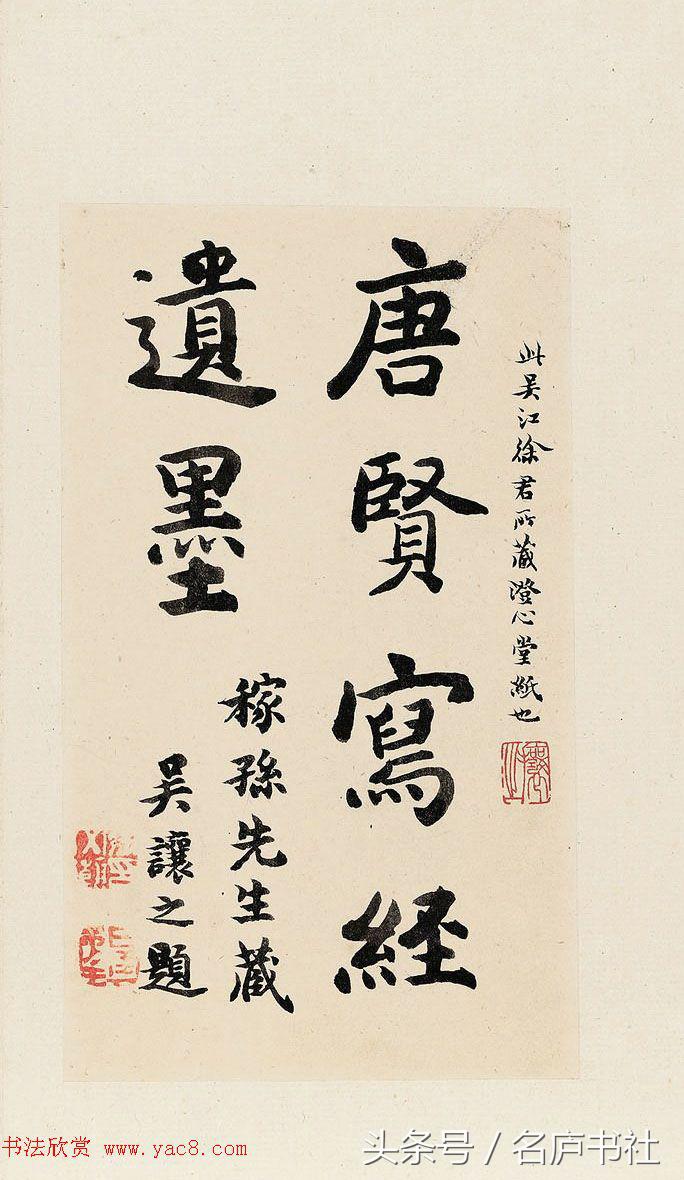 此吴江徐君所藏澄心堂紙也
唐賢寫経
遺墨
稼孫先生藏
吴讓之題
书法欣赏 www.yac8.com
头条号 / 名庐书社